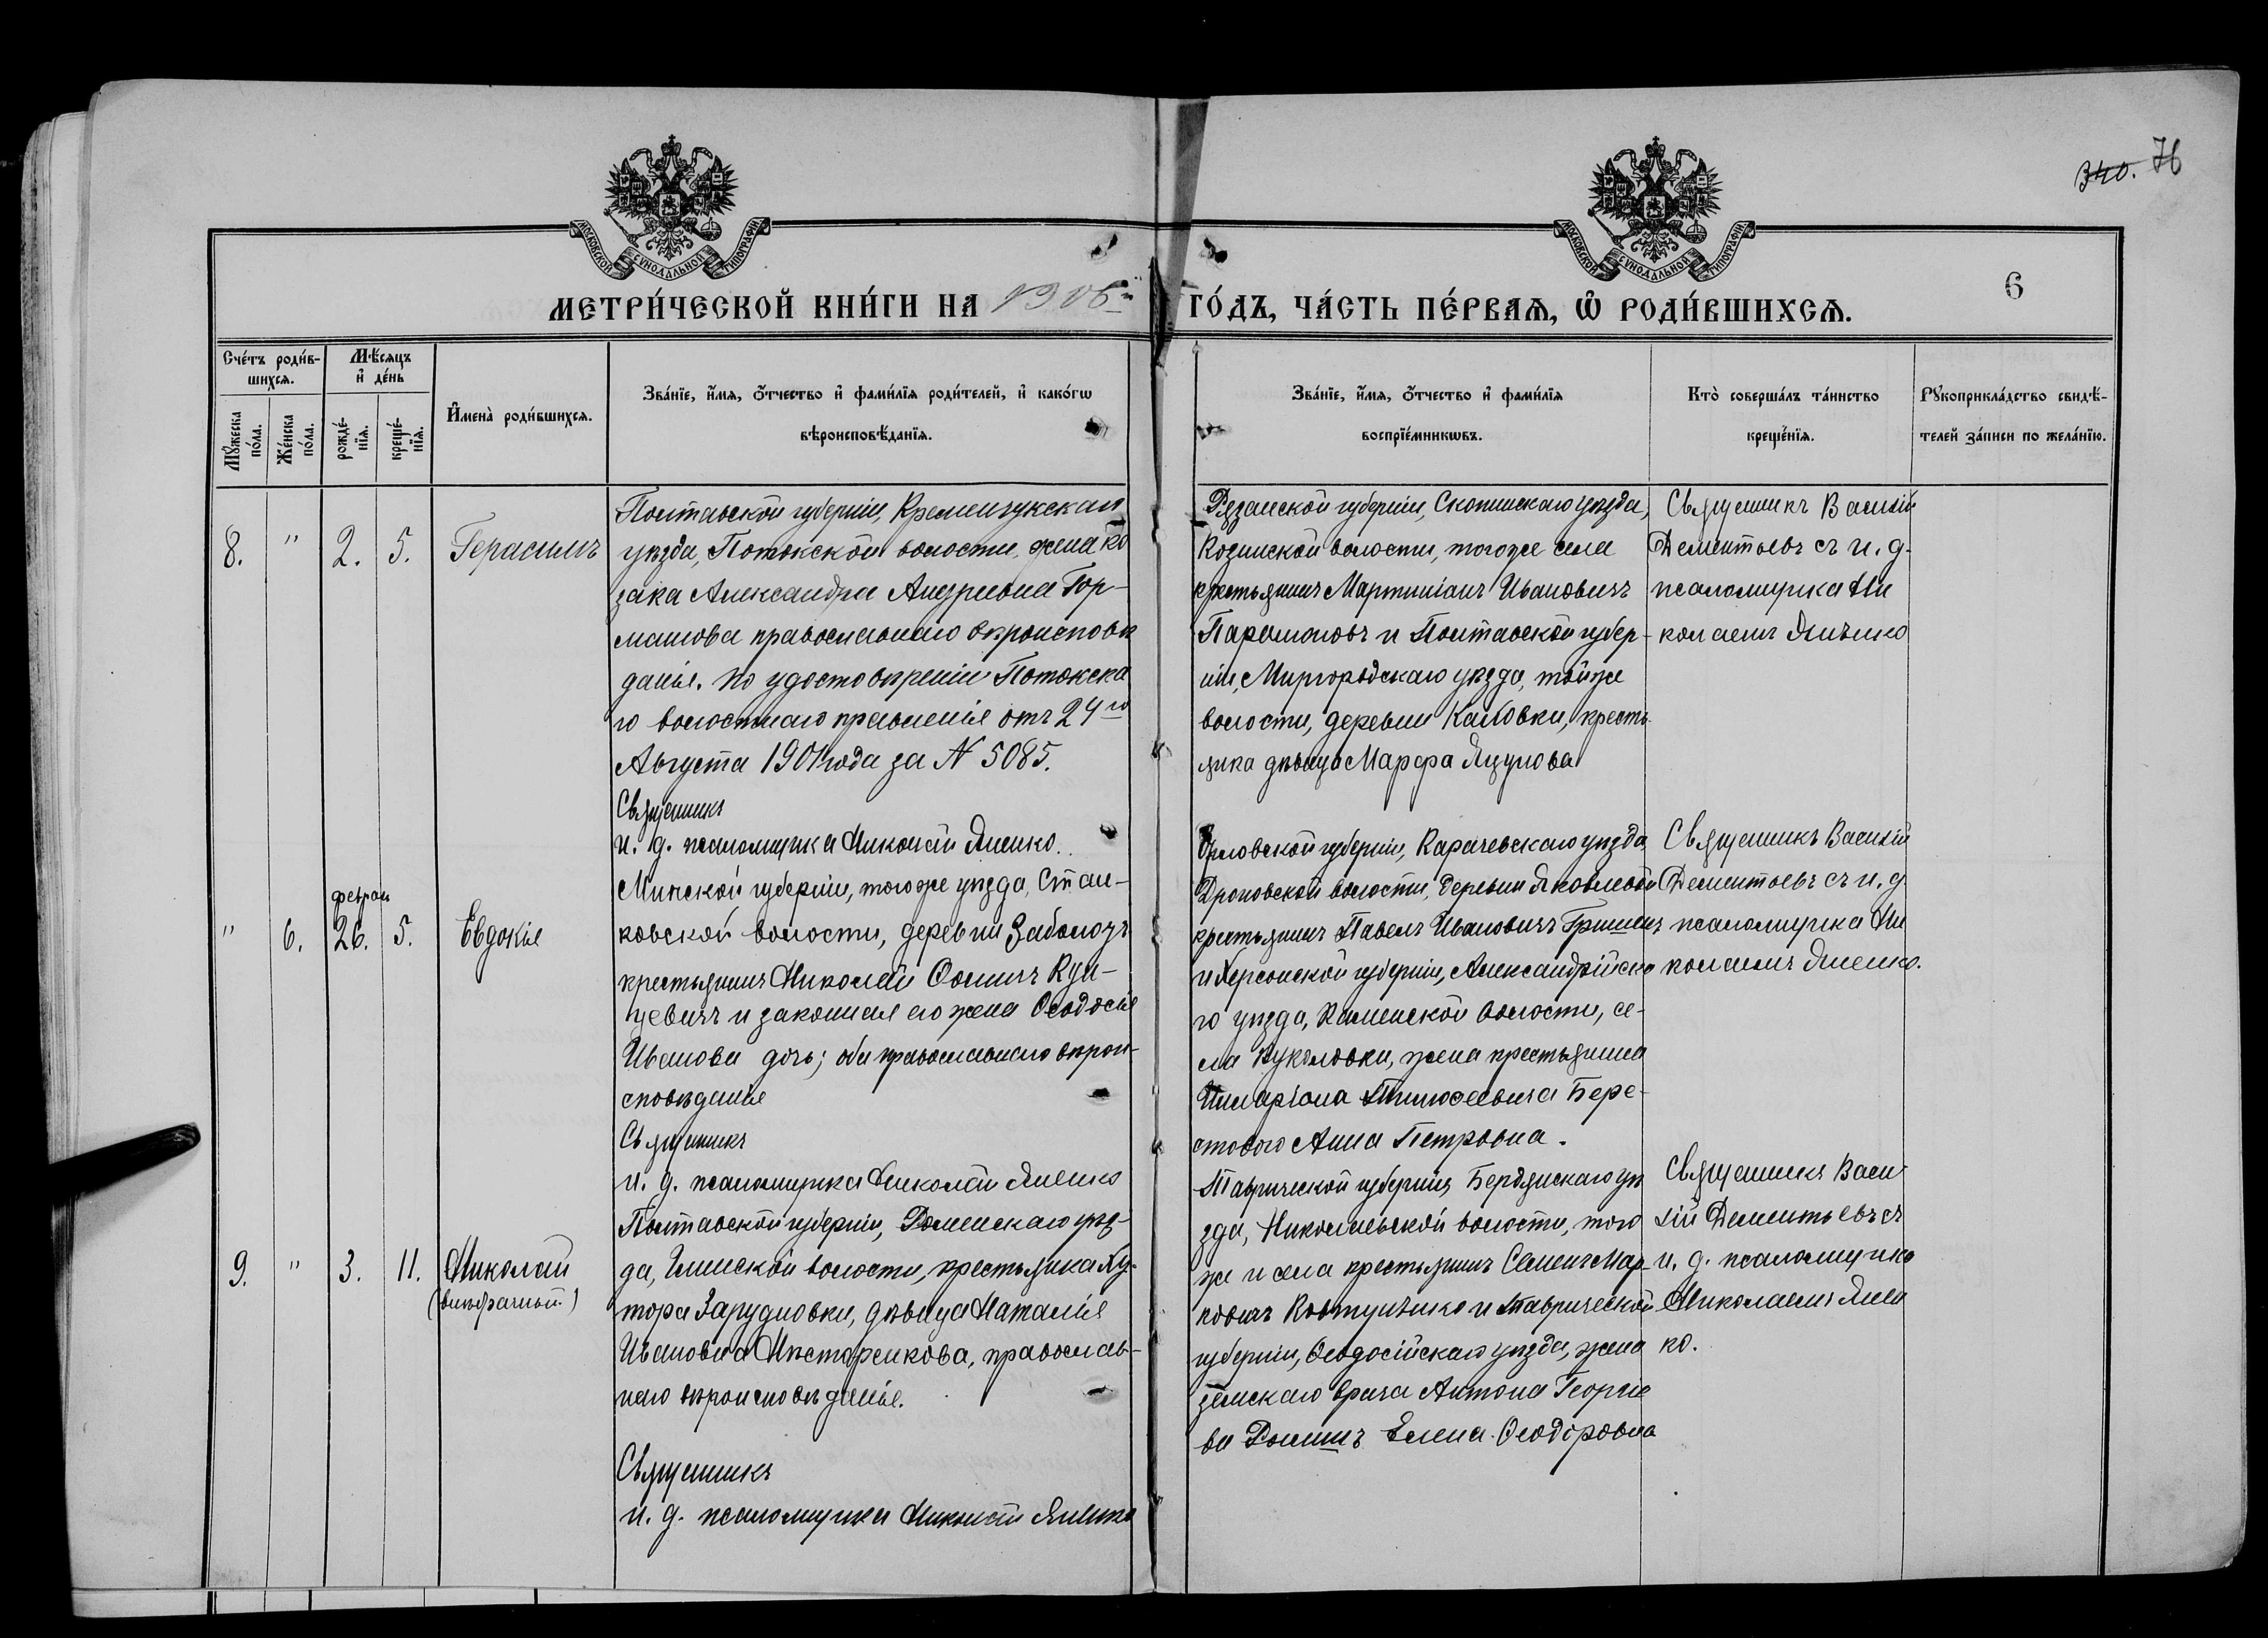 340. 76
МОСКОВСКОЙ СѴНОДАЛЬНОЙ ТИПОГРАФІИ
МОСКОВСКОЙ СѴНОДАЛЬНОЙ ТИПОГРАФІИ
6
МЕТРИ́ЧЕСКОЙ КНИ́ГИ НА 1906 ГО́ДЪ, ЧА́СТЬ ПЕ́РВАѦ, Ѽ РОДИ́ВШИХСѦ.
Сче́тъ роди́в-
шихсѧ.
Мѣ́сѧцъ
и҆ де́нь
Мꙋ́жеска
по́ла.
Же́нска
по́ла.
рожде́-
нїѧ.
креще́-
нїѧ.
И҆мена̀ роди́вшихсѧ.
Зва́нїе, и҆́мѧ, ѻ҆́тчество и҆ фами́лїѧ роди́телей, и҆ како́гѡ
вѣроисповѣ́данїѧ.
Зва́нїе, и҆́мѧ, ѻ҆́тчество и҆ фами́лїѧ
воспрїе́мникѡвъ.
Кто̀ соверша́лъ та́инство
креще́нїѧ.
Рꙋкоприкла́дство свидѣ́-
телей за́писи по жела́нїю.
8. " 2. 5. Герасимъ
Полтавской губерніи, Кременчукскаго
уѣзда, Потокской волости, жена ко
зака Александра Андреевна Гор-
машова православнаго вѣроисповѣ
данія. По удостовѣренію Потокска
го волостнаго правленія отъ 24го
Августа 1901 года за N 5085.
Священникъ
и. д. псаломщика Николай Яненко.
Рязанской губерніи, Скопинскаго уѣзда,
Козинской волости, того же села
крестьянинъ Мартиніанъ Ивановичъ
Парамоновъ и Полтавской губер-
ніи, Миргородскаго уѣзда, той же
волости, деревни Каибовки, кресть
янка дѣвица Марфа Яцунова
Священникъ Василій
Дементьевъ съ и. д.
псаломщика Ни
колаемъ Яненко
феврал
" 6. 26. 5. Евдокія
Минской губерніи, того же уѣзда, Стан-
ковской волости, деревни Заболоть
крестьянинъ Николай Ѳоминъ Кун-
цевичъ и законная его жена Ѳеодосія
Иванова дочь; оба православнаго вѣрои-
сповѣданія
Священникъ
и. д. псаломщика Николай Яненко
Орловской губерніи, Карачевскаго уѣзда,
Дроновской волости, деревни Яковлевой
крестьянинъ Павелъ Ивановичъ Гришинъ
и Херсонской губерніи, Александрійска
го уѣзда, Каменской волости, се-
ла Куколовки, жена крестьянина
Иларіона Тимофеевича Бере-
стового Анна Петровна.
Священникъ Василій
Дементьевъ съ и. д.
псаломщика Ни
колаемъ Яненко.
9. " 3. 11. Николай
(внѣбрачный)
Полтавской губерніи, Роменскаго уѣз-
да, Глинской волости, крестьянка ху-
тора Зарудновки, дѣвица Наталія
Ивановна Нестеренкова, православ-
наго вѣроисповѣданія.
Священникъ
и. д. псаломщика Николай Яненко
Таврической губерніи, Бердянскаго уѣ
зда, Николаевской волости, того
же и села крестьянинъ Семенъ Мар-
ковичъ Ковтуненко и Таврической
губерніи, Ѳеодосійскаго уѣзда, жена
земскаго врача Антона Георгіе
ва Рошинъ Елена Ѳеодоровна
Священникъ Васи
лій Дементьевъ съ
и. д. псаломщика
Николаемъ Янен
ко.